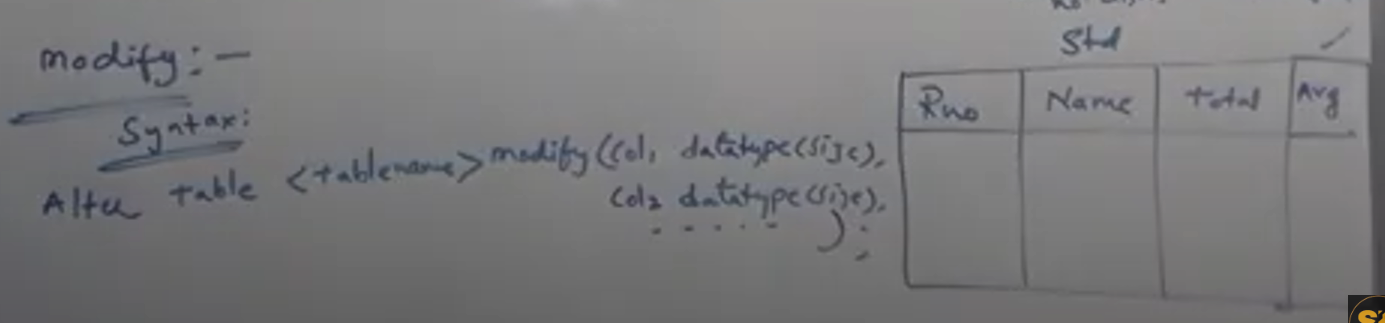 modify:-
Syntax:
Alter table <tablename> modify(Col1 datatype(size),
Col2 datatype(size),
. . . . . );
Std ✓
Rno Name total Avg